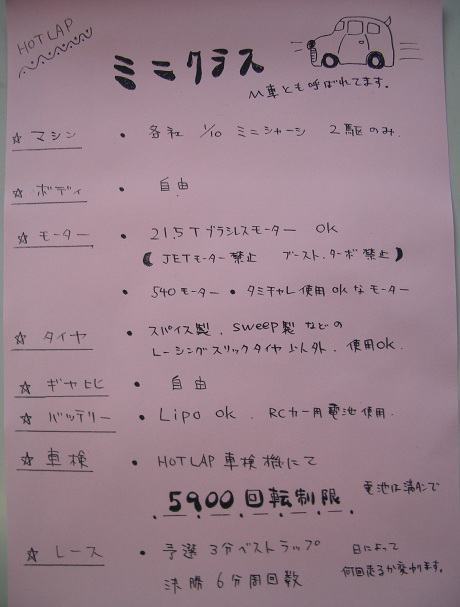 HOT LAP
ミニクラス
M車とも呼ばれてます。
☆ マシン ・ 各社 1/10 ミニシャーシ 2駆のみ.
☆ ボディ ・ 自由
☆ モーター ・ 21.5T ブラシレスモーター OK
( JETモーター禁止 ブースト.ターボ禁止 )
・ 540モーター ・ タミチャレ使用OKなモーター
☆ タイヤ ・ スパイス製 . sweep製 などの
レーシングスリックタイヤ以外 . 使用OK.
☆ ギヤ比 ・ 自由
☆ バッテリー ・ Lipo OK . RCカー用電池使用.
☆ 車検 ・ HOTLAP 車検機にて
5900回転制限 電池は満タンで
☆ レース ・ 予選 3分ベストラップ 日によって
決勝 6分周回数 何回走るか変わります。